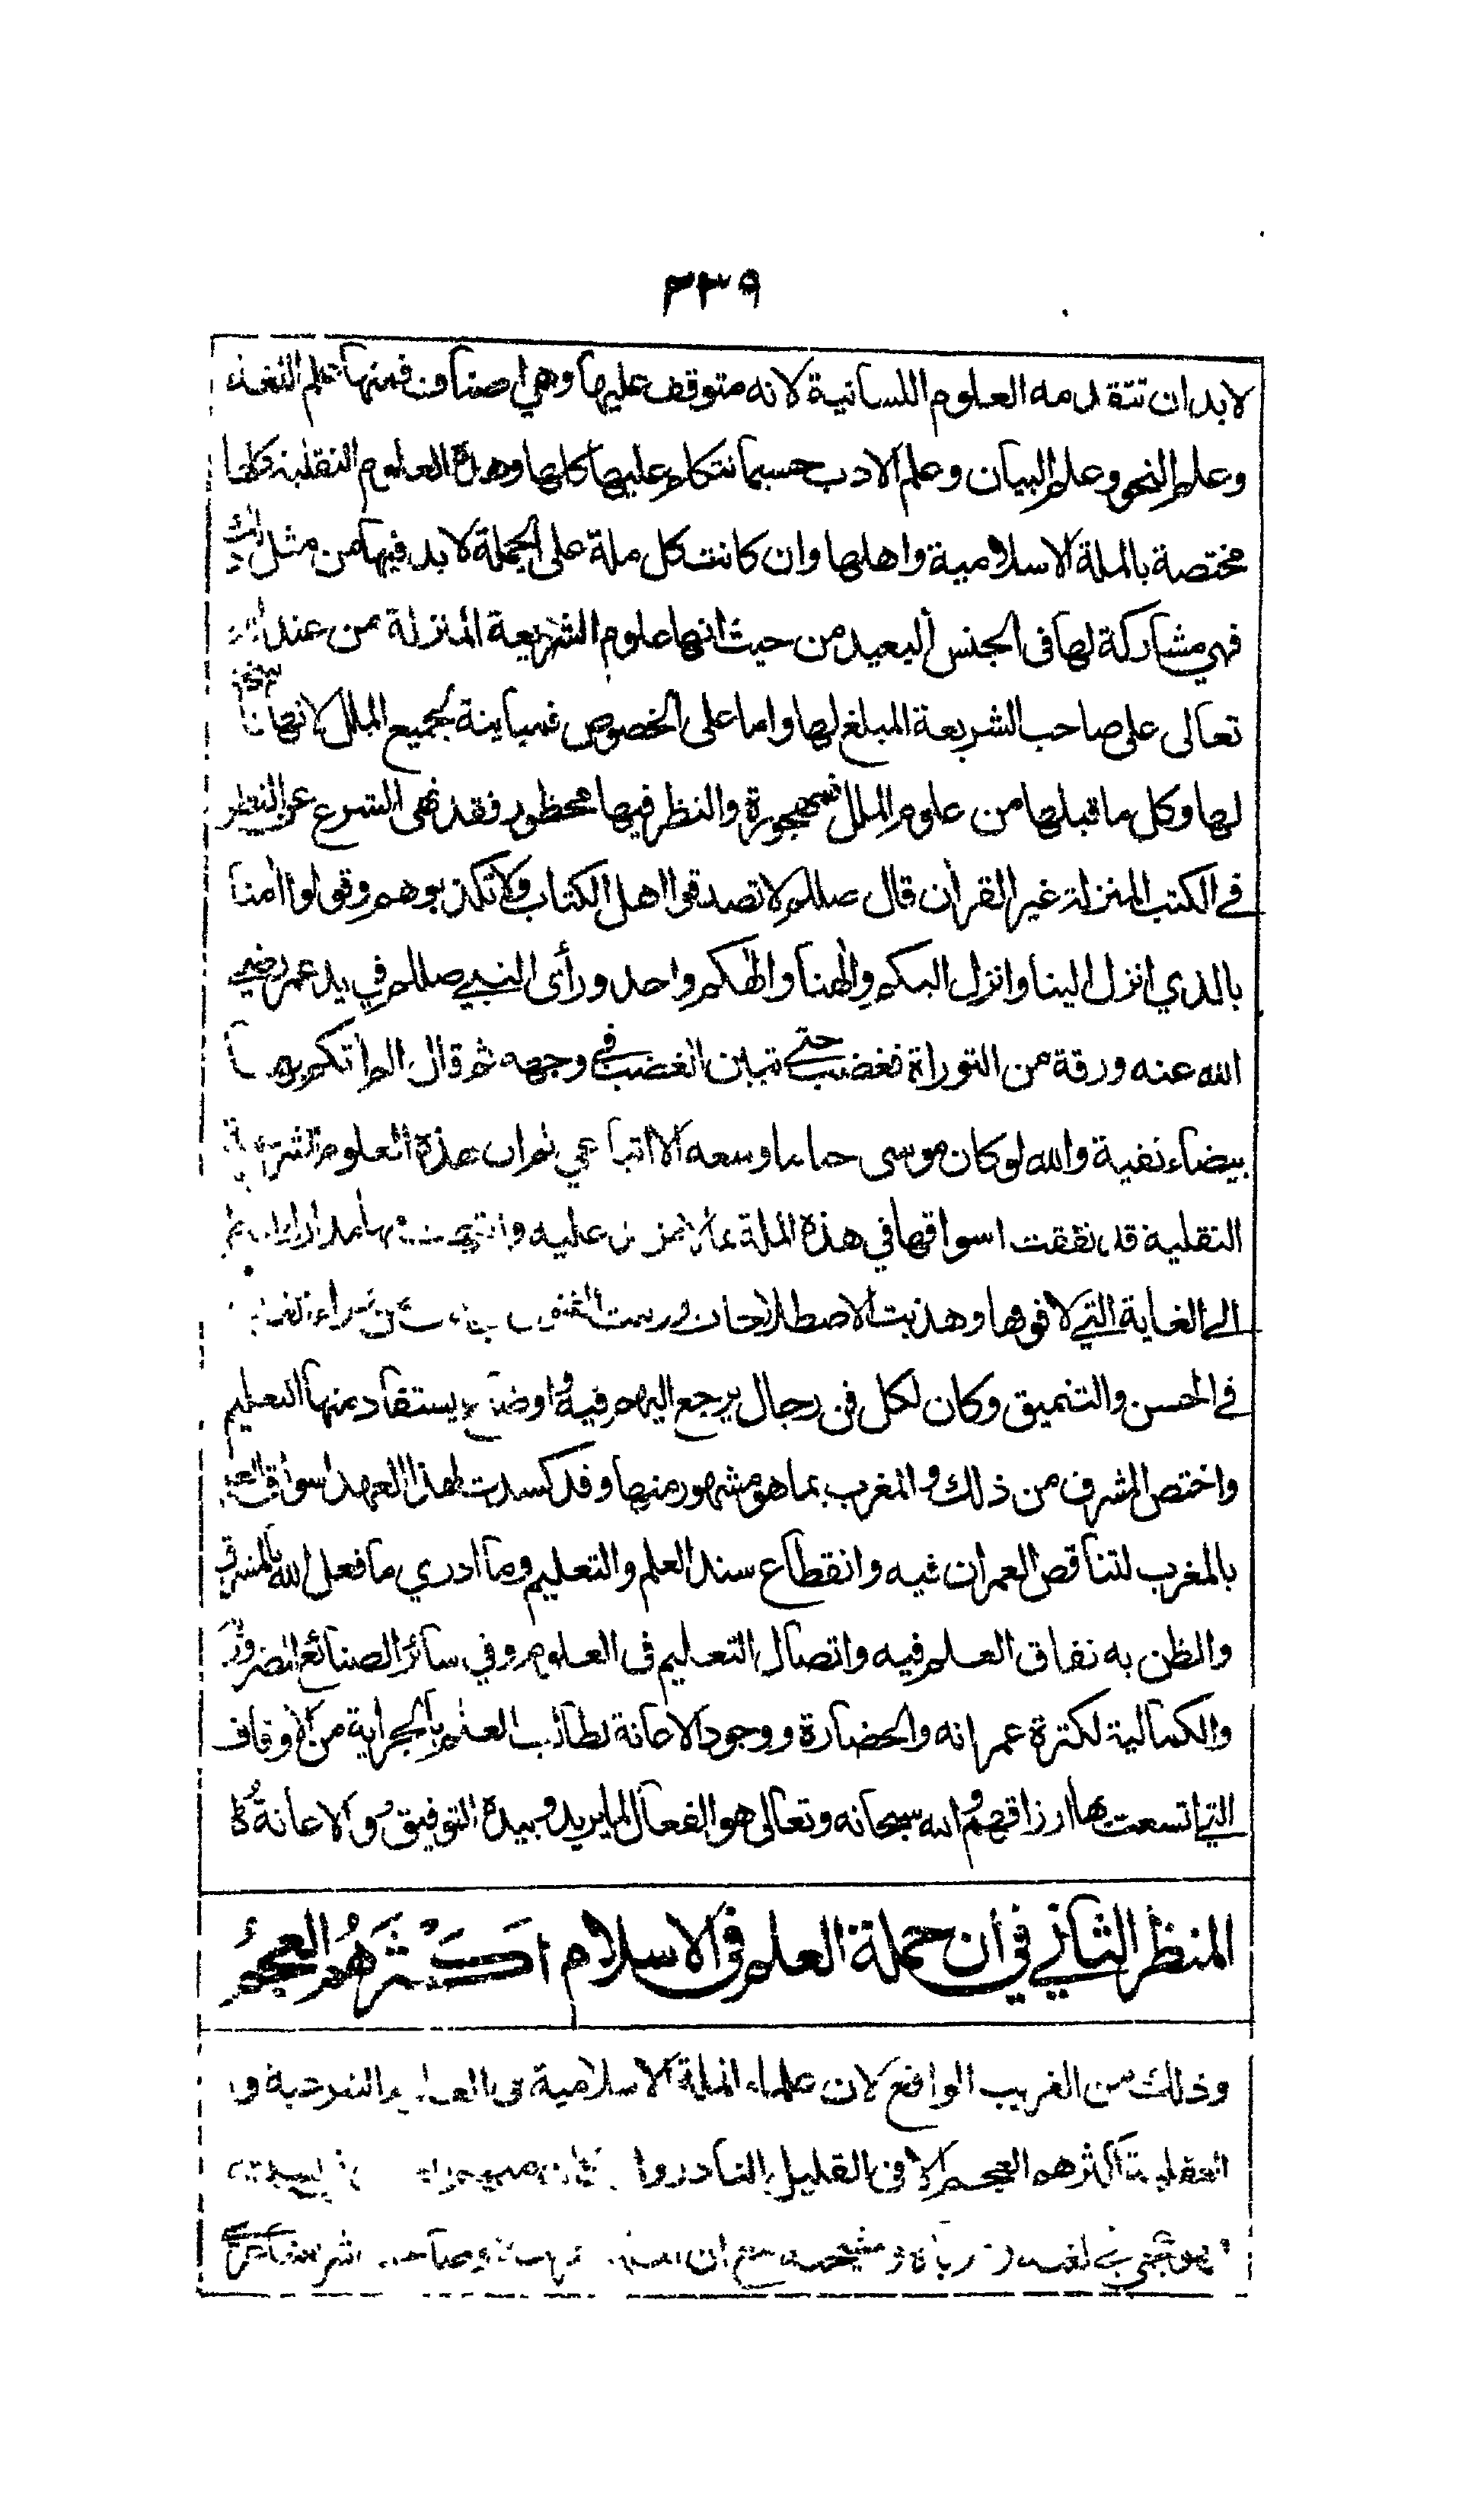 ٣٣٩
لا بد ان تتقدمه العلوم اللسانية لانه متوقف عليها وهي اصناف فمنها علم اللغة
وعلم النحو وعلم البيان وعلم الادب حسبما نتكلم عليها كلها وهذه العلوم النقلية كلها
مختصة بالملة الاسلامية واهلها وان كانت كل ملة على الجملة لا بد فيها من مثل ذلك
فهي مشاركة لها في الجنس البعيد من حيث انها علوم الشريعة المنزلة من عند الله
تعالى على صاحب الشريعة المبلغ لها واما على الخصوص فمباينة لجميع الملل لانها ناسخة
لها وكل ما قبلها من علوم الملل فمهجورة والنظر فيها محظور فقد نهى الشرع عن النظر
في الكتب المنزلة غير القران قال صللم لا تصدقوا اهل الكتاب ولا تكذبوهم وقولوا امنا
بالذي انزل الينا وانزل اليكم والهنا والهكم واحد ورأى النبي صللم في يد عمر رضي
الله عنه ورقة من التوراة فغضب حتى تبين الغضب في وجهه ثم قال الم اتكم بها
بيضاء نقية والله لو كان موسى حيا ما وسعه الا اتباعي ثم ان هذه العلوم الشرعية
النقلية قد نفقت اسواقها في هذه الملة بما لا مزيد عليه وانتهت فيها مدارك
الى الغاية التي لا فوقها وهذبت الاصطلاحات ورتبت الفنون من وراء الغاية
في الحسن والتنميق وكان لكل فن رجال يرجع اليهم فيه واوضاع يستفاد منها التعليم
واختص المشرق من ذلك والمغرب بما هو مشهور منها وقد كسدت لهذا العهد اسواق العلم
بالمغرب لتناقص العمران فيه وانقطاع سند العلم والتعليم وما ادري ما فعل الله بالمشرق
والظن به نفاق العلم فيه واتصال التعليم في العلوم وفي سائر الصنائع الضرورية
والكمالية لكثرة عمرانه والحضارة ووجود الاعانة لطالب العلم بالجراية من الاوقاف
التي اتسعت بها ارزاقهم والله سبحانه وتعالى هو الفعال لما يريد وبيده التوفيق والاعانة
المنظر الثاني في ان حملة العلم في الاسلام اكثرهم العجم
وذلك من الغريب الواقع لان علماء الملة الاسلامية في العلوم الشرعية و
العقلية اكثرهم العجم الا في القليل النادر وان كان منهم
فهو عجمي في لغته ومرباه ومشيخته مع ان الملة عربية وصاحب شريعتها عربي